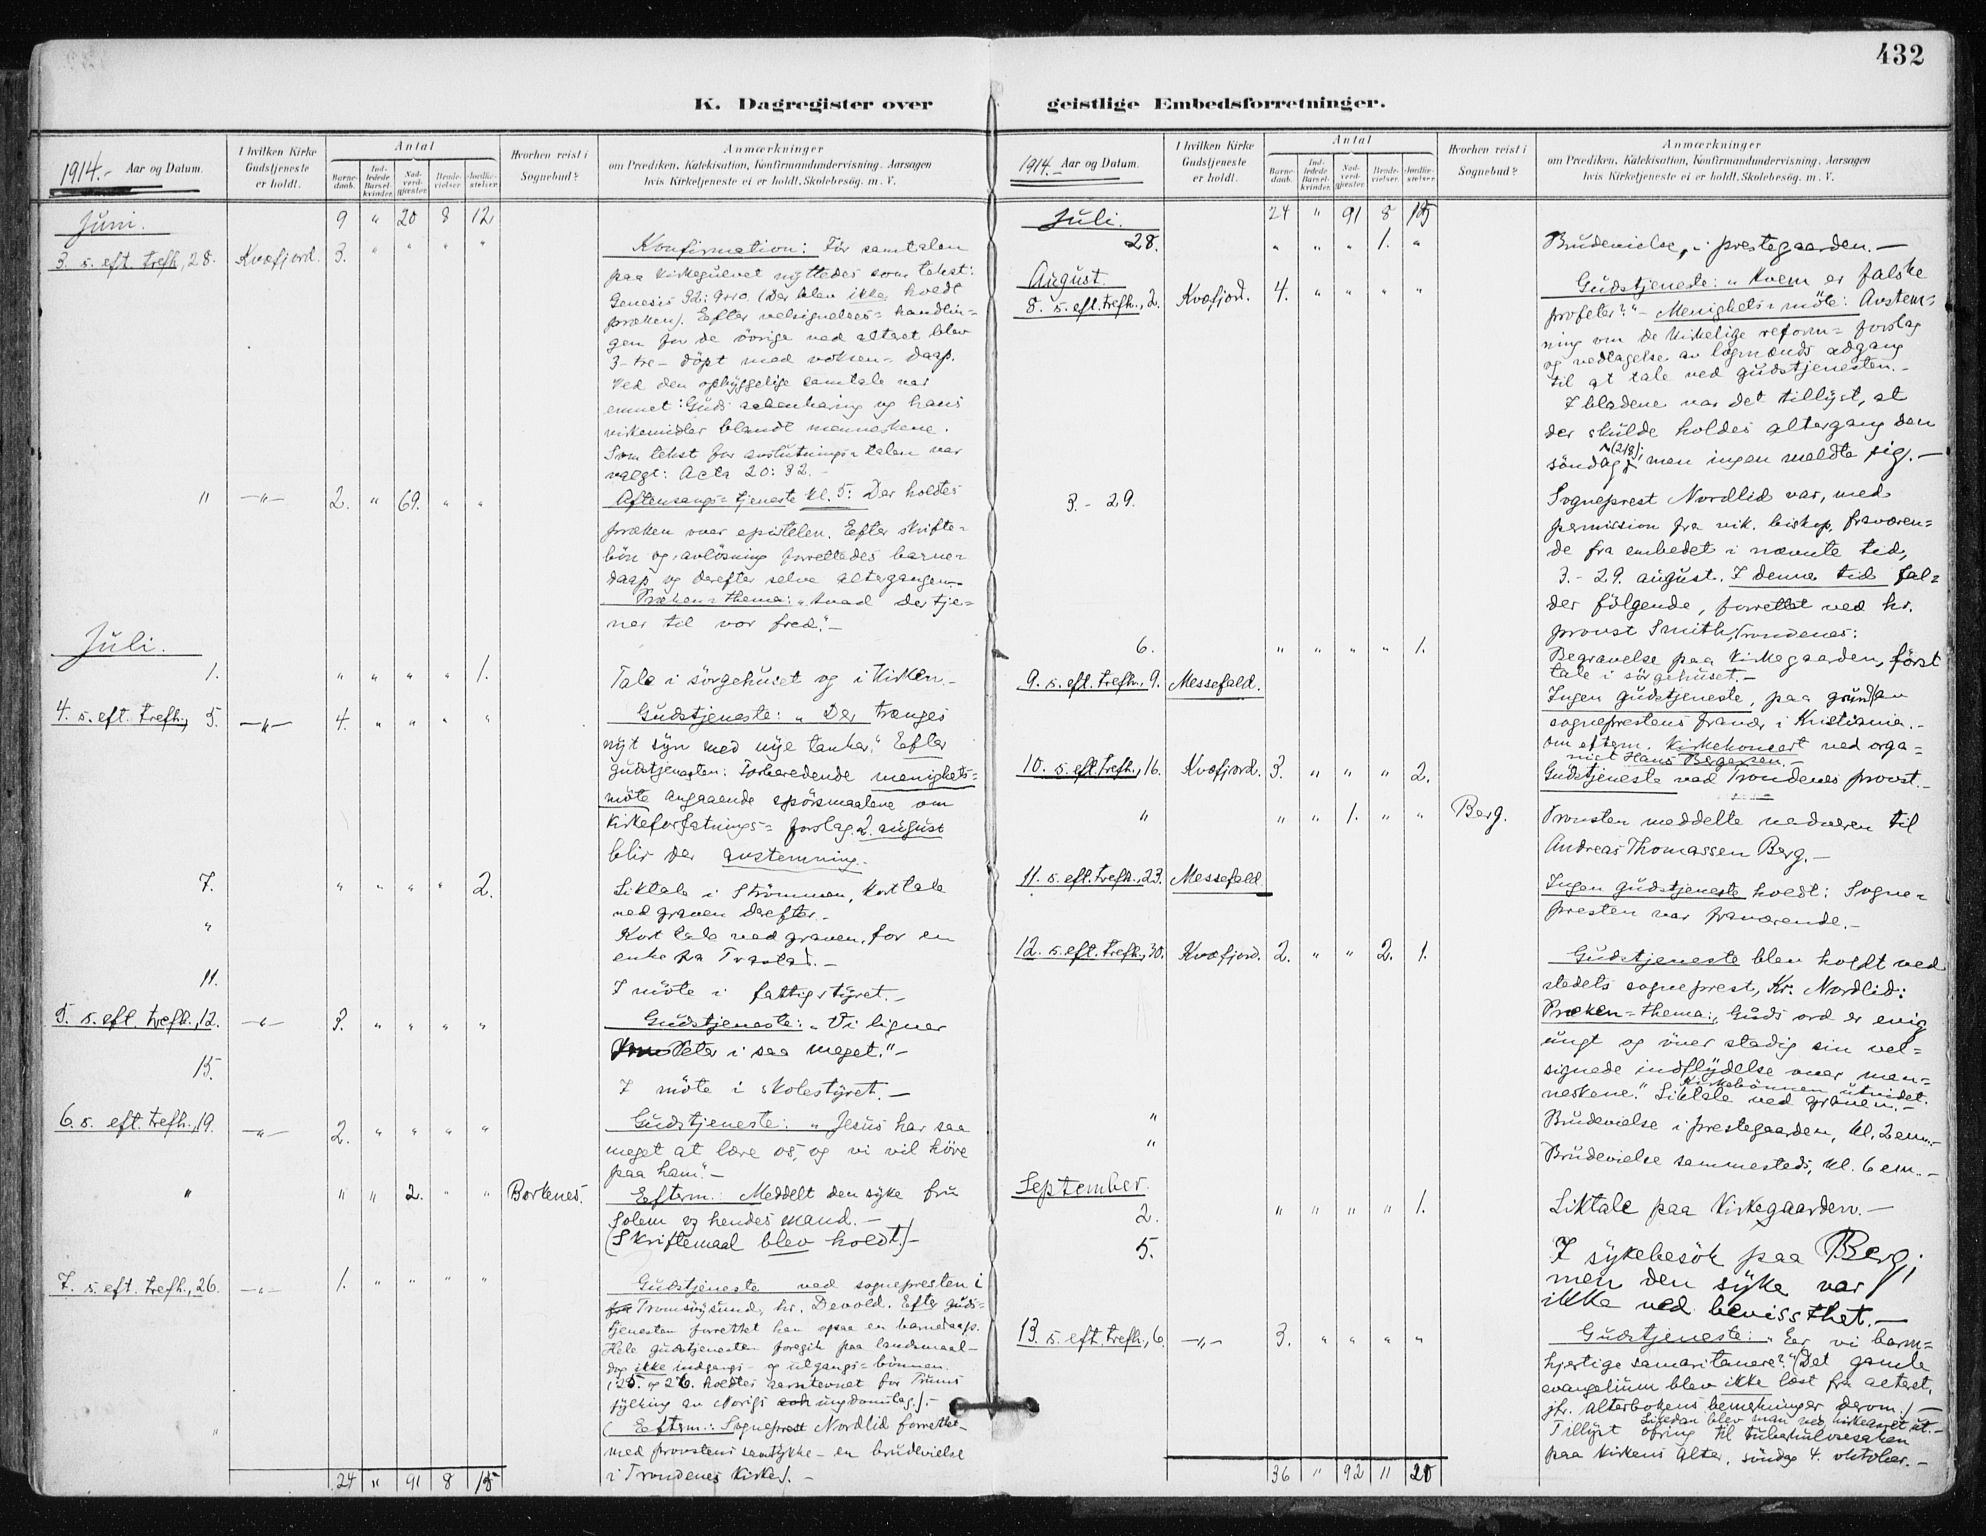 432
K. Dagregister over geistlige Embedsforretninger.
1914.- Aar og Datum.
I hvilken Kirke Gudstjeneste er holdt.
Antal
Barne-daab.
Ind-ledede Barsel-kvinder.
Nad-verd-gjester.
Brude-vielser.
Jordfæ-stelser.
Hvorhen reist i Sognebud?
Anmærkninger
om Prædiken, Katekisation, Konfirmandundervisning, Aarsagen
hvis Kirketjeneste ei er holdt, Skolebesøg, m. V.
Juni. 9 " 20 8 12
3. s. eft. trefh, 28. Kvæfjord. 3. " " " " Konfirmation: Før samtalen
paa kirkegulvet nyttedes som tekst:
Genesis 32: 9-10. (Der blev ikke holdt
præken). Efter velsignelses= handlin=
gen for de øvrige ved alteret blev
3 - tre - døpt med voksen= daap.
Ved den opbyggelige samtale var
emnet: Guds aabenbaring og hans
virkemidler blandt menneskene.
Som tekst for avslutnings= talen var
valgt: Acta 20: 32. -
" -"- 2. " 69. " " Aftensangs= tjeneste kl. 5: Der holdtes
præken over epistelen. Efter skrifte=
bøn og avløsning forrettedes barne=
daap og derefter selve altergangen.-
Præken= thema: "Hvad der tje=
ner til vor fred." -
Juli.
1. " " " " 1. Tale i sørgehuset og i kirken.-
4. s. eft. trefh, 5. -"- 4. " " " " Gudstjeneste: "Der trænges
nyt syn med nye tanker." Efter
gudstjenesten: Forberedende menighets=
møte angaaende spørsmaalene om
kirkeforfatnings= forslag. 2. august
blir der avstemning.-
7. " " " " 2. Liktale i Strømmen, kort tale
ved graven derefter.-
" Kort tale ved graven, for en
enke fra Trastad.-
11. I møte i fattigstyret.-
5. s. eft. trefh., 12. -"- 3. " " " " Gudstjeneste: "Vi ligner
Peter i saa meget." -
15. I møte i skolestyret.-
6. s. eft. trefh., 19. -"- 2. " " " " Gudstjeneste: "Jesus har saa
meget at lære os, og vi vil høre
paa ham." -
" " " 2. " " Borkenes. Efterm.: Meddelt den syke fru
Solem og hendes mand.-
(Skriftemaal blev holdt.)-
7. s. eft. trefh., 26. -"- 1. " " " " Gudstjeneste ved sognepresten i
Tromsøysund, hr. Devold. Efter guds=
tjenesten forrettet han ogsaa en barnedaap.
Hele gudstjenesten foregik paa landsmaal-
dog ikke indgangs- og utgangs= bønnen.
(25. og 26. holdtes aarsstevnet for Troms
fylking av Norigs ungdomslag).-
" (Efterm.: Sogneprest Nordlid forrettet-
med provstens samtykke - en brudevielse
i Trondenes kirke).-
24 " 91 8 15
1914.- Aar og Datum.
I hvilken Kirke Gudstjeneste er holdt.
Antal
Barne-daab.
Ind-ledede Barsel-kvinder.
Nad-verd-gjester.
Brude-vielser.
Jordfæ-stelser.
Hvorhen reist i Sognebud?
Anmærkninger
om Prædiken, Katekisation, Konfirmandundervisning, Aarsagen
hvis Kirketjeneste ei er holdt, Skolebesøg, m. V.
Juli. 24 " 91 8 15
28. " " " 1. " Brudevielse, i prestegaarden.-
August.
8. s. eft. trefh., 2. Kvæfjord. 4. " " " " Gudstjeneste: "Hvem er falske
profeter?" - Menighets= møte: Avstem=
ning om de kirkelige reform= forslag
og vedtagelse av lægmænds adgang
til at tale ved gudstjenesten.-
I bladene var det tillyst, at
der skulde holdes altergang den
søndag (2/8), men ingen meldte sig.-
3. - 29. Sogneprest Nordlid var, med
permission fra vik. biskop, fraværen=
de fra embedet i nævnte tid,
3. - 29. august. I denne tid fal=
der følgende, forrettet ved hr.
provst Smith, Trondenes:
6. " " " " 1. Begravelse paa kirkegaarden, først
tale i sørgehuset.-
9. s. eft. trefh., 9. Messefald. Ingen gudstjeneste, paa grund av
sogneprestens fravær, i Kristiania.-
Om efterm. kirkekonsert ved orga=
nist Hans Bergersen.-
10. s. eft. trefh., 16. Kvæfjord. 3. " " " 2. Gudstjeneste ved Trondenes provst.-
" " " 1. " " Berg. Provsten meddelte nadveren til
Andreas Thomassen Berg.-
11. s. eft. trefh., 23. Messefald. Ingen gudstjeneste holdt: Sogne=
presten var fraværende.-
12. s. eft. trefh., 30. Kvæfjord. 2. " " 2. 1. Gudstjeneste blev holdt ved
stedets sogneprest, Kr. Nordlid:
Præken= thema: "Guds ord er evig
ungt og øver stadig sin vel=
signede indflydelse over men=
neskene." Kirkebønnen utvidet.
Liktale ved graven.-
" Brudevielse i prestegaarden, kl. 2 em.-
" Brudevielse sammesteds, kl. 6 em.-
September.
2. " " " " 1. Liktale paa kirkegaarden.-
5. I sykebesøk paa Berg;
men den syke var
ikke ved bevissthet.-
13. s. eft. trefh., 6. -"- 3. " " " " Gudstjeneste: "Er vi barm=
hjertige samaritanere?" (Det gamle
evangelium blev ikke læst fra alteret,
jfr. alterbokens bemerkninger derom.)-
Likedan blev
Tillyst ofring til tuberkulosesaken
paa kirkens alter, søndag 4. oktober.-
36 " 92 11 20